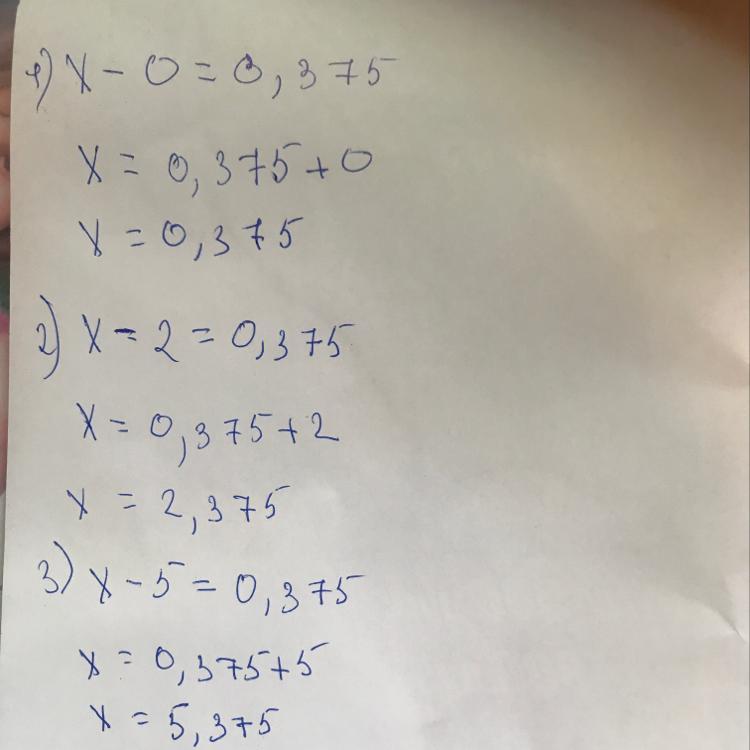 1) x - 0 = 0,375
x = 0,375 + 0
x = 0,375
2) x - 2 = 0,375
x = 0,375 + 2
x = 2,375
3) x - 5 = 0,375
x = 0,375 + 5
x = 5,375